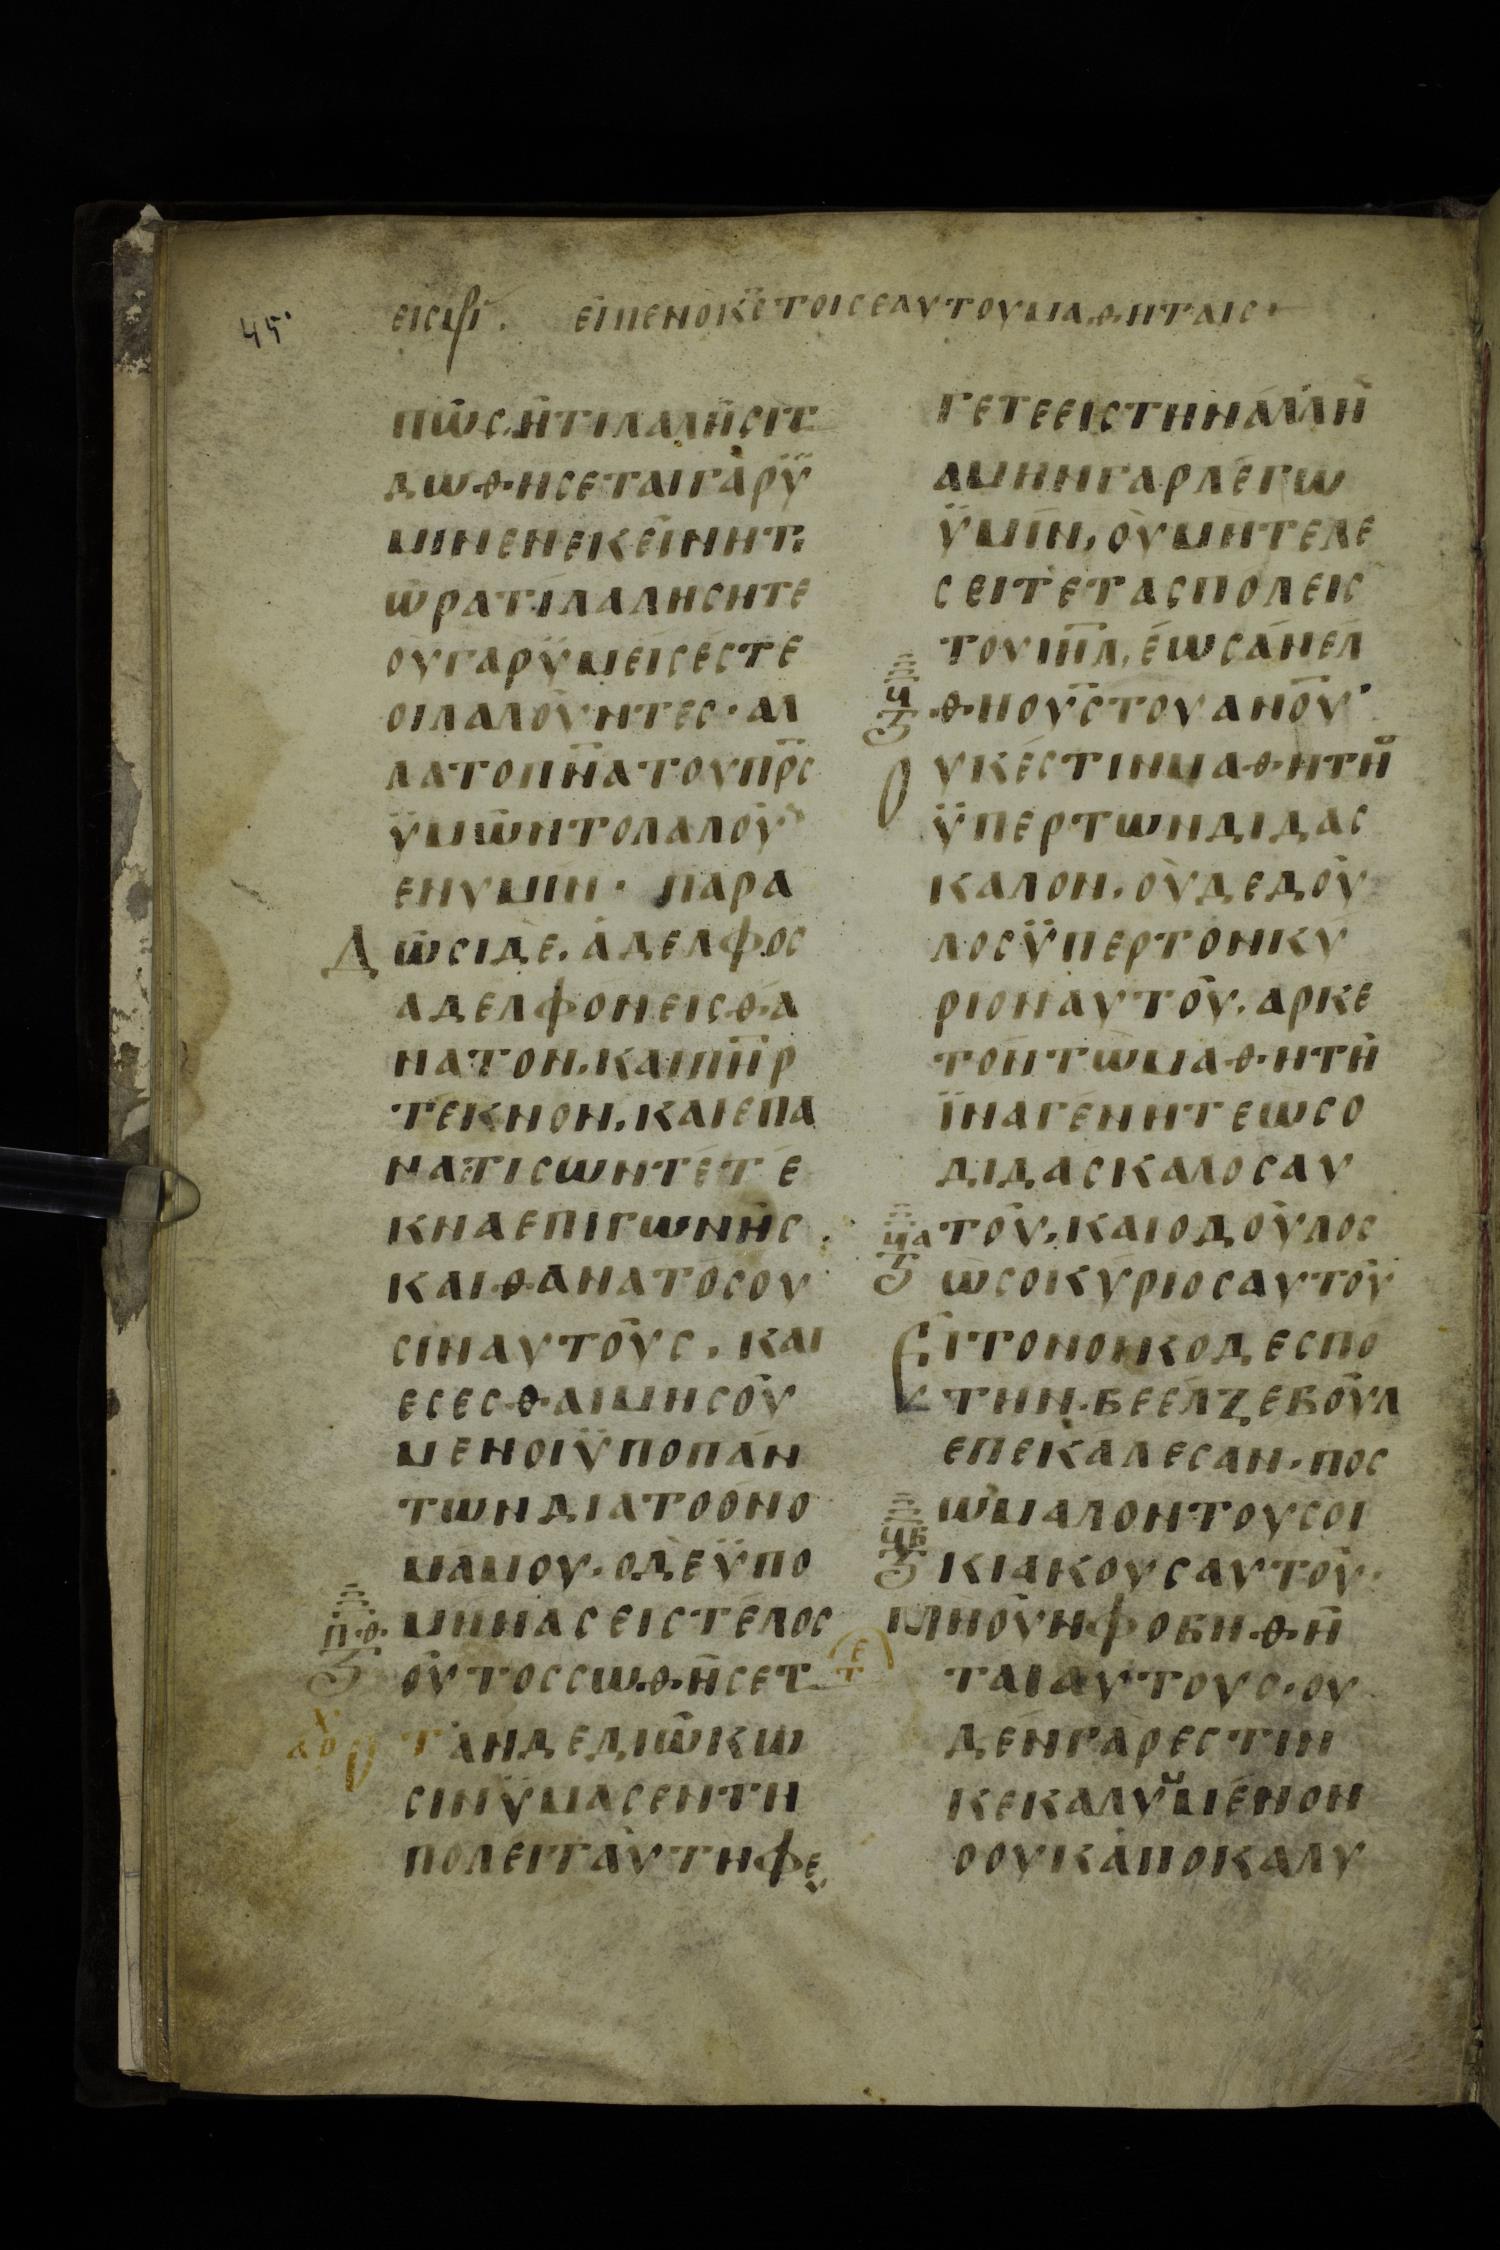 45
ΕΙC ΜΡ. ΕΙΠΕΝΟΚ̅C̅ΤΟΙCΕΑΥΤΟΥΜΑΘΗΤΑΙC·
ΠΩC,ΗΤΙΛΑΛΗCΙΤ
ΔΩΘΗCΕΤΑΙΓΑΡΫ
ΜΙΝΕΝΕΚΕΙΝΗΤ
ΩΡΑΤΙΛΑΛΗCΗΤΕ
ΟΥΓΑΡΫΜΕΙCΕCΤΕ
ΟΙΛΑΛΟΥΝΤΕC·ΑΛ
ΛΑΤΟΠ̅Ν̅ΑΤΟΥΠ̅Ρ̅C
ΫΜΩΝΤΟΛΑΛΟΥ
ΕΝΥΜΙΝ· ΠΑΡΑ
ΔΩCΙΔΕ.ΑΔΕΛΦΟC
ΑΔΕΛΦΟΝΕΙCΘΑ
ΝΑΤΟΝ.ΚΑΙΠ̅Η̅Ρ
ΤΕΚΝΟΝ.ΚΑΙΕΠΑ
ΝΑΤΙCΩΝΤΕΤΕ
ΚΝΑΕΠΙΓΩΝΗC.
ΚΑΙΘΑΝΑΤΟCΟΥ
CΙΝΑΥΤΟΥC. ΚΑΙ
ΕCΕCΘΑΙΜΗCΟΥ
ΜΕΝΟΙΫΠΟΠΑΝ
ΤΩΝΔΙΑΤΟΟΝΟ
ΜΑΜΟΥ.ΟΔΕΫΠΟ
ΜΗΝΑCΕΙCΤΕΛΟC
Π·Θ·
ΟΥΤΟCCΩΘΗCΕΤ
ΟΤΑΝΔΕΔΙΩΚΩ
CΙΝΫΜΑCΕΝΤΗ
ΠΟΛΕΙΤΑΥΤΗΦΕΥ
ΓΕΤΕΕΙCΤΗΝΑΛΛΗ
ΑΜΗΝΓΑΡΛΕΓΩ
ΫΜΙΝ,ΟΥΜΗΤΕΛΕ
CΕΙΤΕΤΑCΠΟΛΕΙC
ΤΟΥΙ̅Π̅Λ,ΕΩCΑΝΕΛ
Ϥ
ΘΗΟΥ̅C̅ΤΟΥΑΝ̅Ο̅Υ·
ΟΥΚΕCΤΙΝΜΑΘΗΤΗ
ΫΠΕΡΤΩΝΔΙΔΑC
ΚΑΛΟΝ.ΟΥΔΕΔΟΥ
ΛΟCΫΠΕΡΤΟΝΚΥ
ΡΙΟΝΑΥΤΟΥ.ΑΡΚΕ
ΤΟΝΤΩΜΑΘΗΤΗ
ΪΝΑΓΕΝΗΤΕΩCΟ
ΔΙΔΑCΚΑΛΟCΑΥ
ϤΑ
ΤΟΥ.ΚΑΙΟΔΟΥΛΟC
ΩCΟΚΥΡΙΟCΑΥΤΟΥ
ΕΙΤΟΝΟΙΚΟΔΕCΠΟ
ΤΗΝ.ΒΕΕΛΖΕΒΟΥΛ
ΕΠΕΚΑΛΕCΑΝ.ΠΟC
ΩΜΑΛΟΝΤΟΥCΟΙ
ϤΒ
ΚΙΑΚΟΥCΑΥΤΟΥ.
ΜΗΟΥΝΦΟΒΗΘΗ
ΤΑΙΑΥΤΟΥC.ΟΥ
ΔΕΝΓΑΡΕCΤΙΝ
ΚΕΚΑΛΥΜΜΕΝΟΝ
ΟΟΥΚΑΠΟΚΑΛΥ